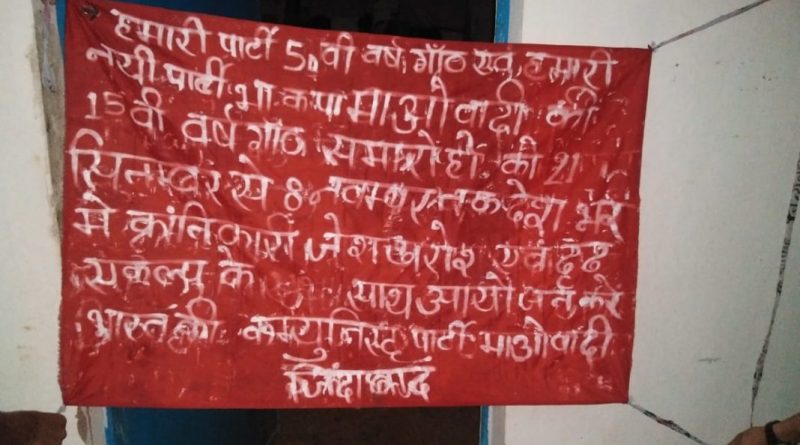 हमारी पार्टी 50 वी वर्ष गाँठ एवं हमारी
नयी पार्टी भा क पा माओवादी की
15 वी वर्ष गाँठ समारोहो को 21
सितम्बर से 8 नवम्बर तक देश भर
मे क्रांतिकारी जोश खरोश एवं दृढ
संकल्प के साथ आयोजन करे
भारत की कम्युनिस्ट पार्टी माओवादी
जिंदाबाद